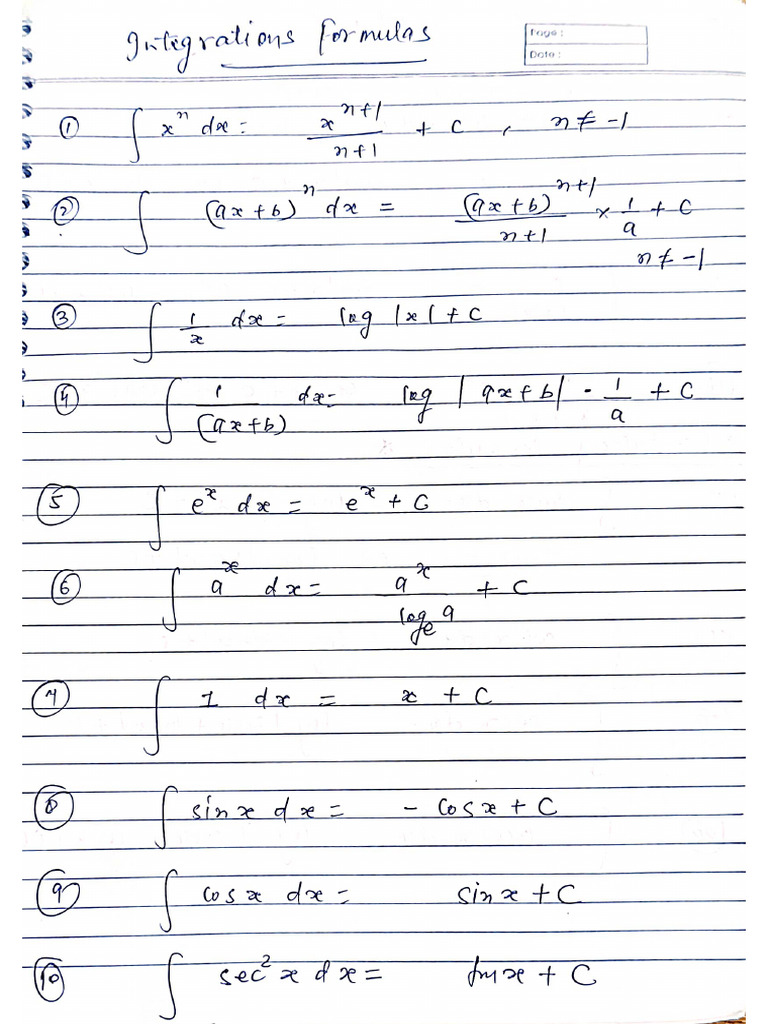 Integrations formulas
Page :
Date :
① ∫ xⁿ dx = xⁿ⁺¹/n+1 + C , n ≠ -1
② ∫ (ax+b)ⁿ dx = (ax+b)ⁿ⁺¹/n+1 × 1/a + C
n ≠ -1
③ ∫ 1/x dx = log |x| + C
④ ∫ 1/(ax+b) dx = log |ax+b| · 1/a + C
⑤ ∫ eˣ dx = eˣ + C
⑥ ∫ aˣ dx = aˣ/logₑ a + C
⑦ ∫ 1 dx = x + C
⑧ ∫ sinx dx = - cosx + C
⑨ ∫ cosx dx = sinx + C
⑩ ∫ sec²x dx = tanx + C